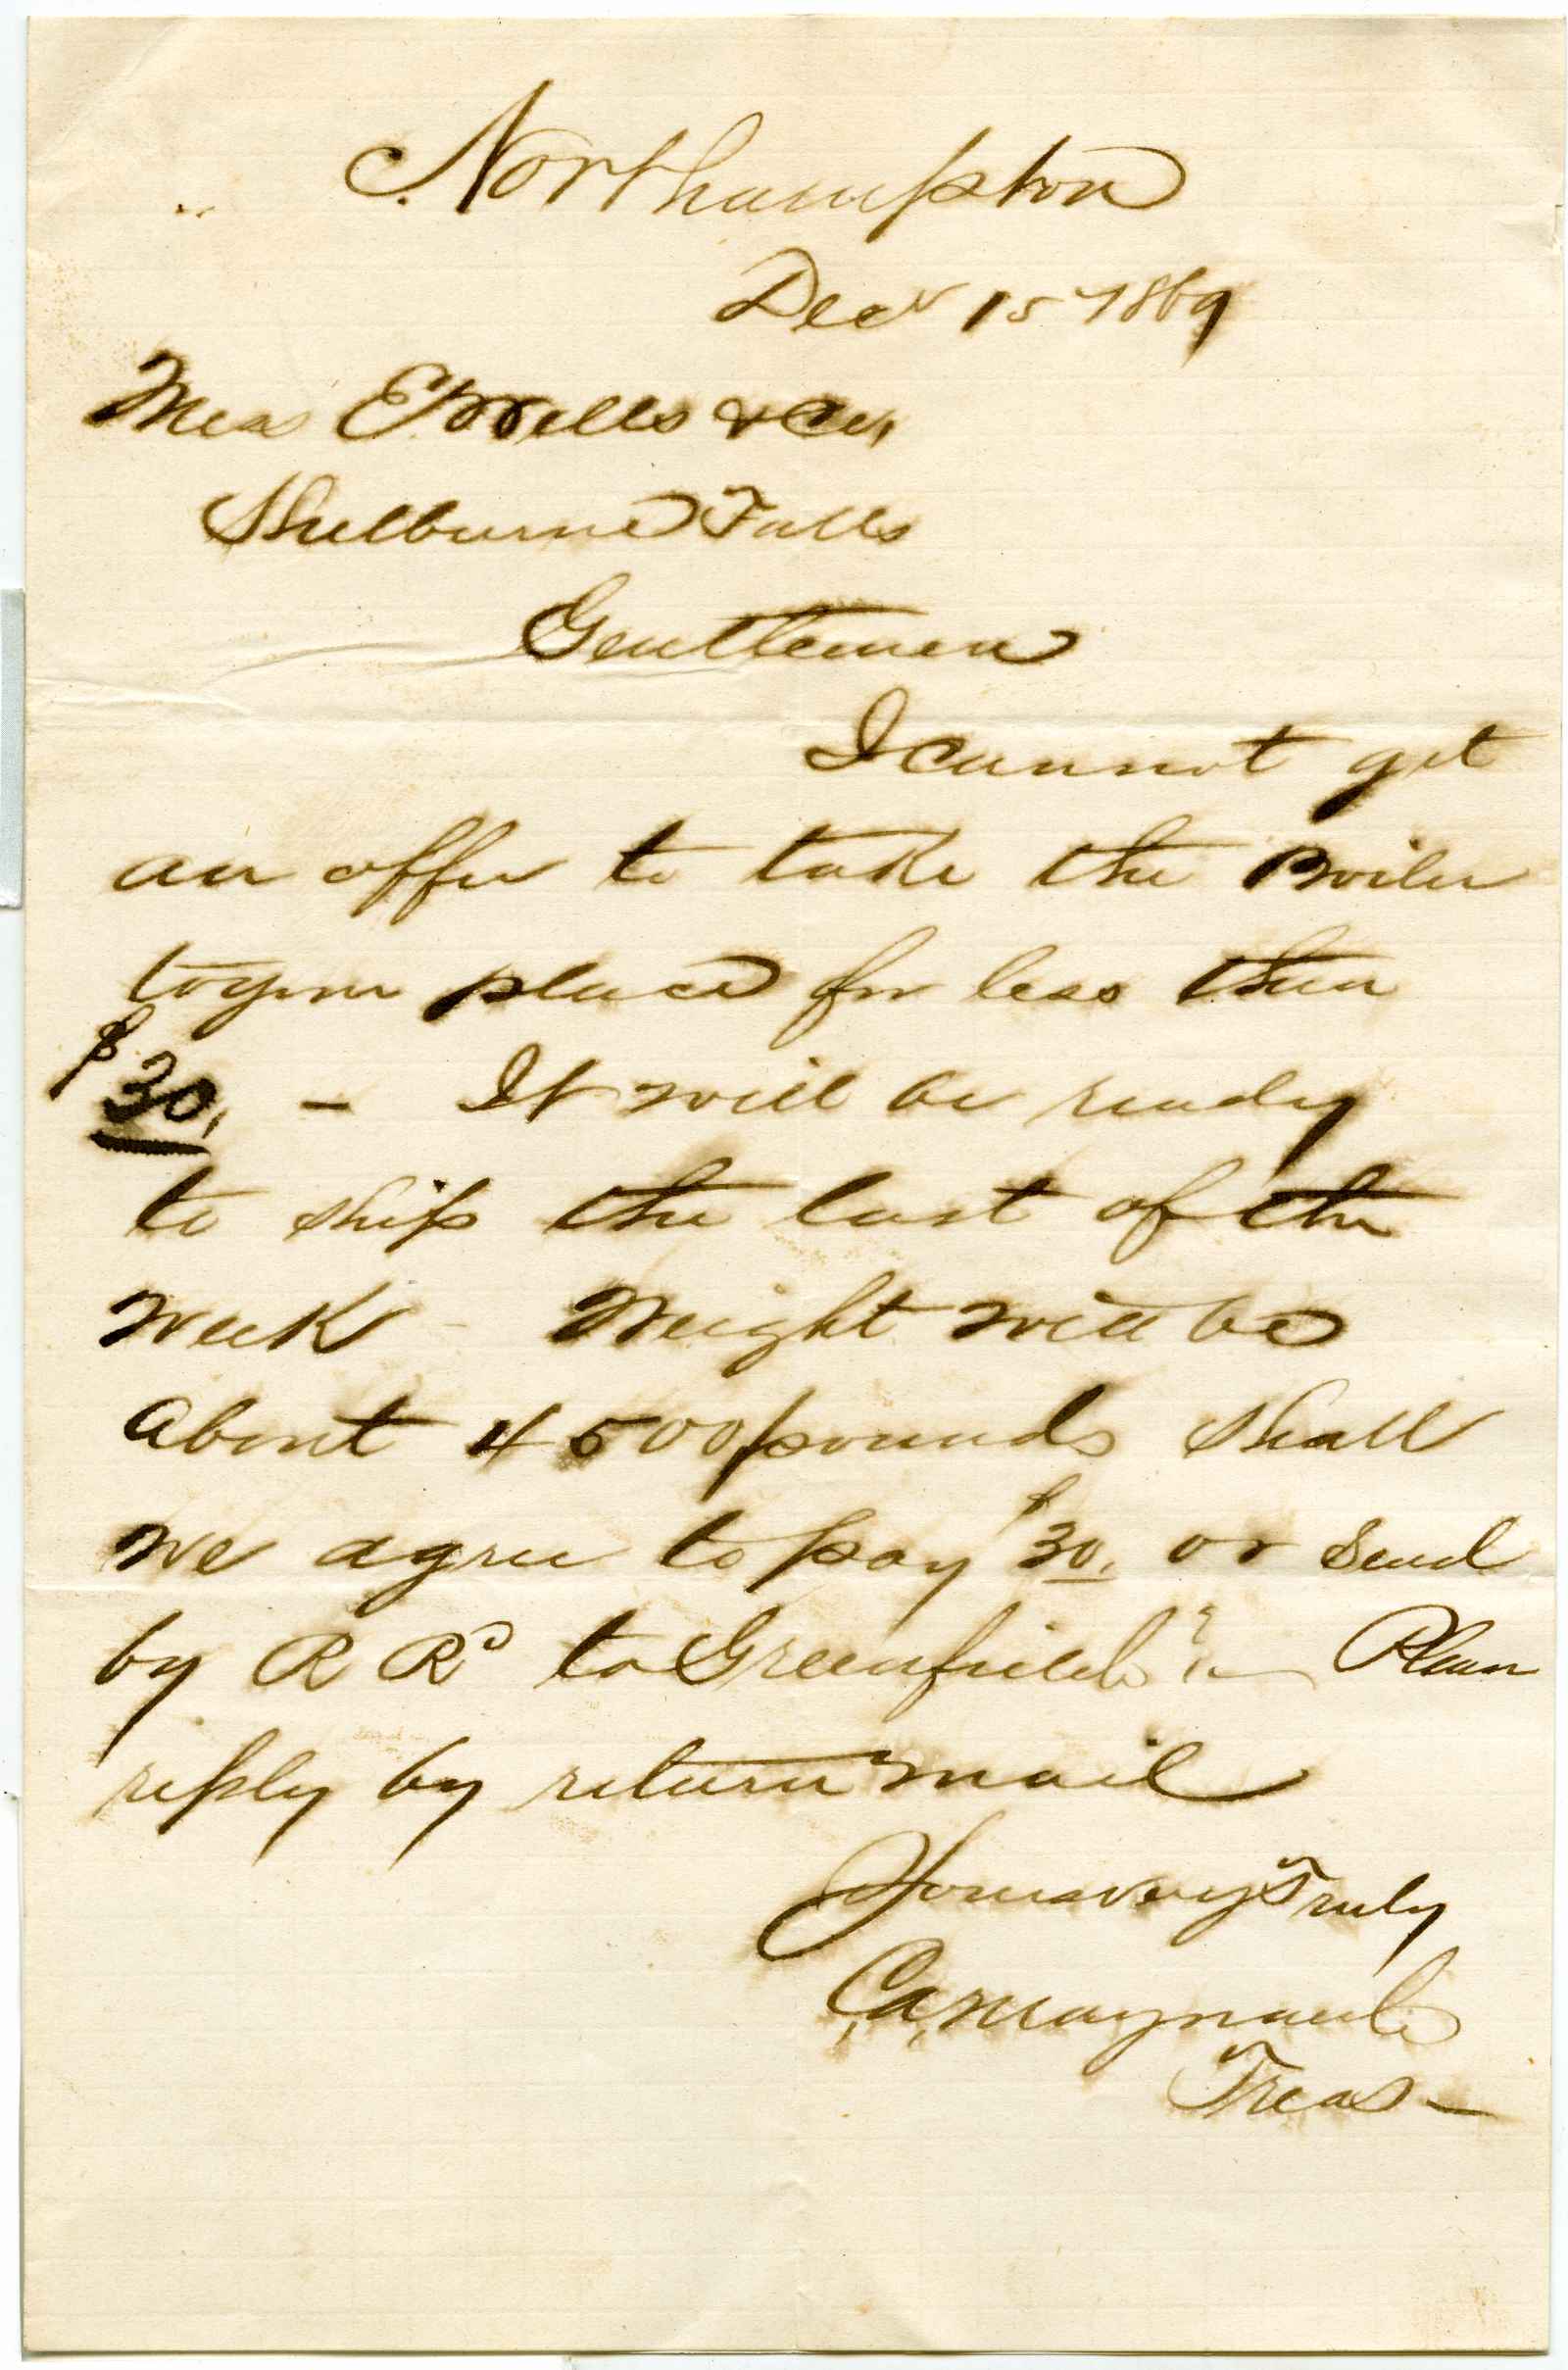 Northampton
Decr 15 1869
Mess E Wells & Co,
Shelburne Falls
Gentlemen
I cannot get
an offer to take the Boiler
to your place for less than
$30, – It will be ready
to ship the last of the
week – Weight will be
about 4500 pounds shall
we agree to pay $30, or send
by R Rd to Greenfield? – Please
reply by return mail
Yours very Truly
C. A. Maynard
Treas –